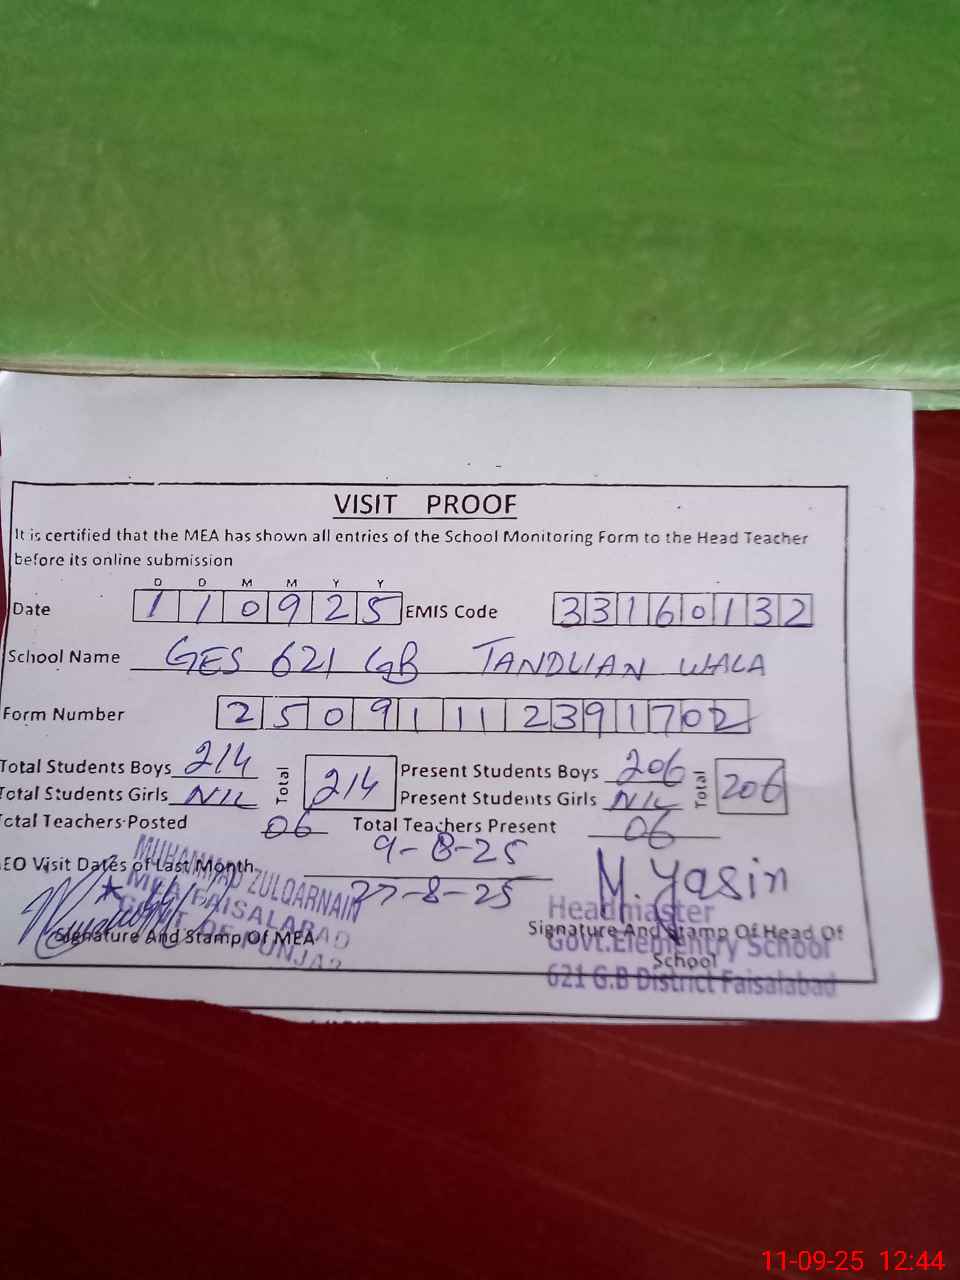 VISIT PROOF
It is certified that the MEA has shown all entries of the School Monitoring Form to the Head Teacher
before its online submission
D D M M Y Y
Date 110925 EMIS Code 33160132
School Name GES 621 GB TANDLIAN WALA
Form Number 250911112391702
Total Students Boys 214 Total 214 Present Students Boys 206 Total 206
Total Students Girls NIL Present Students Girls NIL
Total Teachers Posted 06 Total Teachers Present 06
EO Visit Dates of Last Month 9-8-25
27-8-25
M. Yasin
MUHAMMAD ZULQARNAIN
MEA FAISALABAD
GOVT. OF PUNJAB
Signature And Stamp Of MEA
Headmaster
Signature And Stamp Of Head Of
School
Govt. Elementry School
621 G.B District Faisalabad
11-09-25 12:44